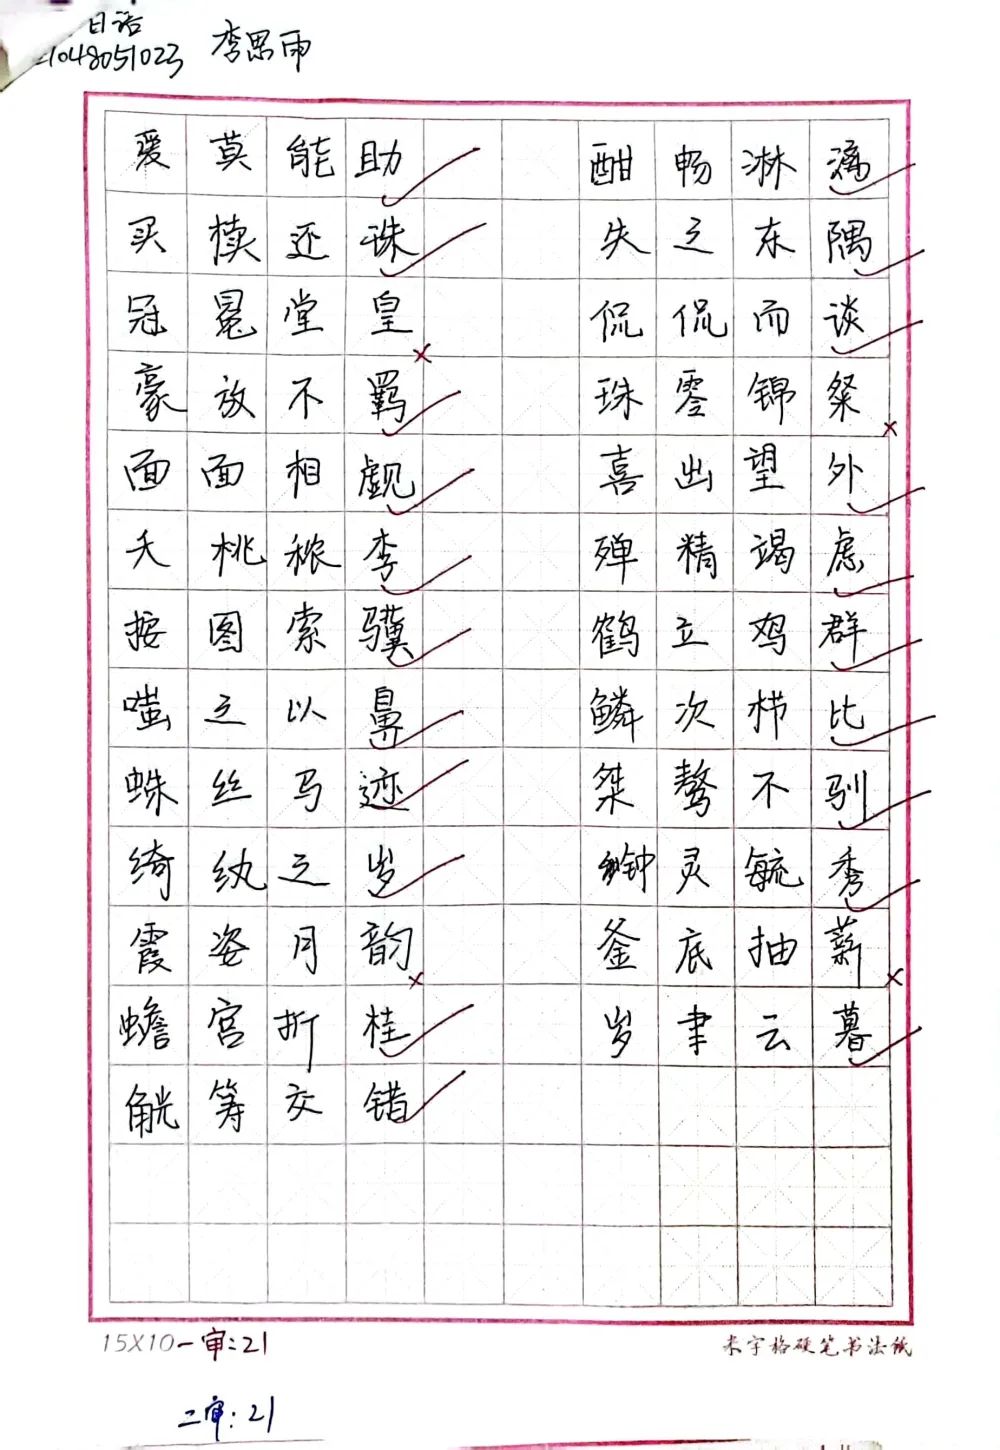 日语
21048051023 李思雨
爱莫能助 酣畅淋漓
买椟还珠 失之东隅
冠冕堂皇 侃侃而谈
豪放不羁 珠零锦粲
面面相觑 喜出望外
夭桃秾李 殚精竭虑
按图索骥 鹤立鸡群
嗤之以鼻 鳞次栉比
蛛丝马迹 桀骜不驯
绮纨之岁 钟灵毓秀
霞姿月韵 釜底抽薪
蟾宫折桂 岁聿云暮
觥筹交错
15X10 一审:21 米字格硬笔书法纸
二审:21